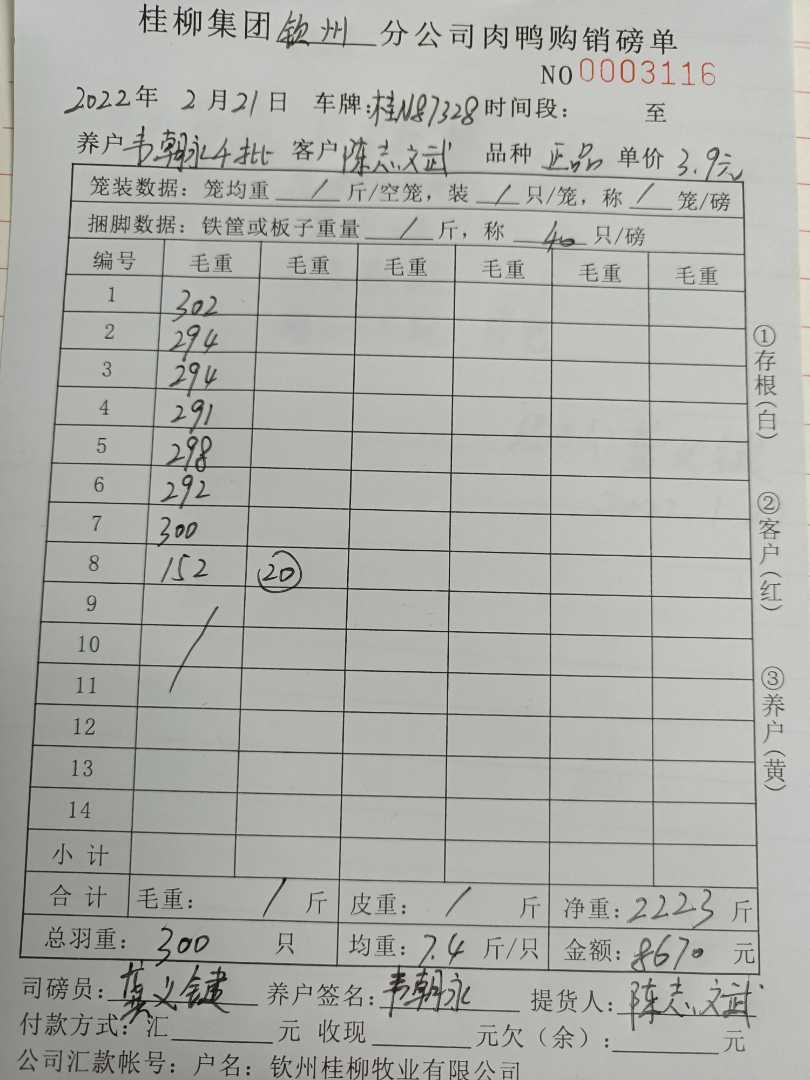 桂柳集团钦州分公司肉鸭购销磅单
NO 0003116
2022年 2月21日 车牌:桂N87328 时间段: 至
养户 韦朝永4批 客户 陈志文武 品种 正品 单价 3.9元
笼装数据: 笼均重 / 斤/空笼, 装 / 只/笼, 称 / 笼/磅
捆脚数据: 铁筐或板子重量 / 斤, 称 40 只/磅
编号 毛重 毛重 毛重 毛重 毛重 毛重
1 302
2 294
3 294
4 291
5 298
6 292
7 300
8 152 20
9
10
11
12
13
14
小计
合计 毛重: / 斤 皮重: / 斤 净重: 2223 斤
总羽重: 300 只 均重: 7.4 斤/只 金额: 8670 元
司磅员: 义键 养户签名: 韦朝永 提货人: 陈志文武
付款方式: 汇 元 收现 元欠(余): 元
公司汇款帐号: 户名: 钦州桂柳牧业有限公司
①存根(白)
②客户(红)
③养户(黄)